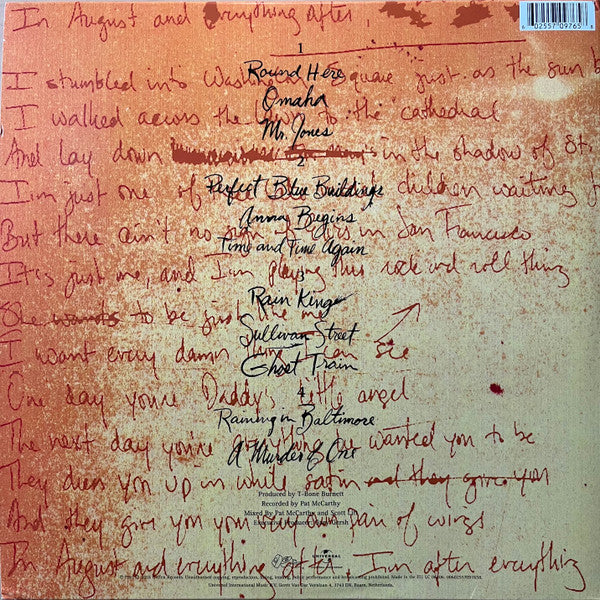 In August and everything after,
6 02557 09765 8
1
Round Here
I stumbled into Washington Square just as the sun b
Omaha
I walked across the to the cathedral
Mr. Jones
And lay down in the shadow of St.
2
I'm just one of children waiting f
Perfect Blue Buildings
Anna Begins
But there ain't no in San Francisco
Time and Time Again
It's just me, and I'm playing this rock and roll thing
3
Rain King
She wants to be just like me
Sullivan Street
I want every damn thing I can see
Ghost Train
One day you're Daddy's little angel
4
Raining in Baltimore
The next day you're everything he wanted you to be
A Murder of One
They dress you up in white satin and they give you
Produced by T-Bone Burnett
Recorded by Pat McCarthy
Mixed by Pat McCarthy and Scott Litt
And they give you your own pair of wings
In August and everything after, I'm after everything
UNIVERSAL